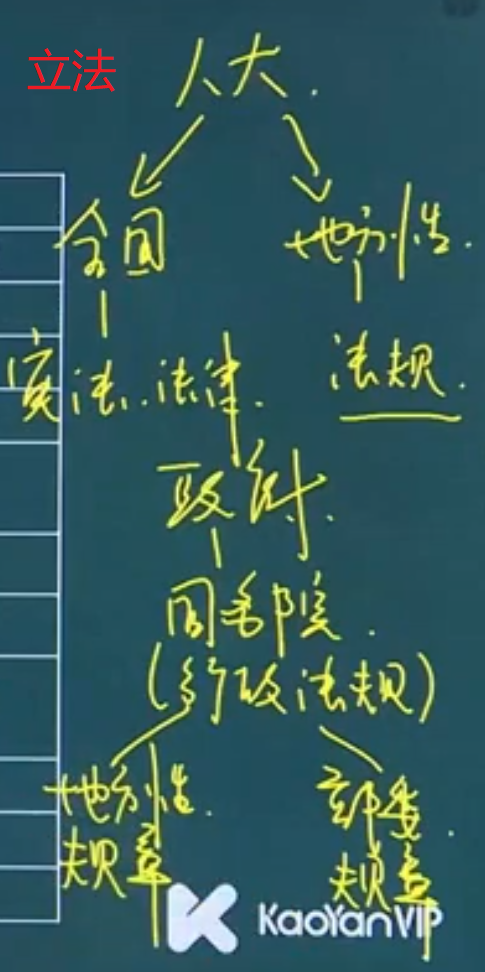 立法
人大.
全国 地方性.
宪法.法律. 法规.
政府.
国务院.
(行政法规)
地方性. 部委.
规章 规章
KaoYanVIP